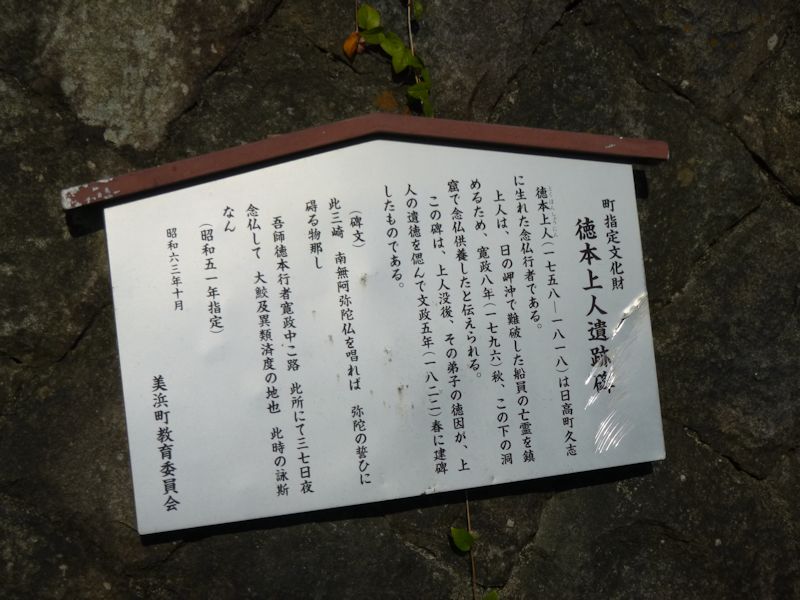 町指定文化財
徳本上人遺跡碑
徳本上人（一七五八―一八一八）は日高町久志
に生れた念仏行者である。
上人は、日の岬沖で難破した船員の亡霊を鎮
めるため、寛政八年（一七九六）秋、この下の洞
窟で念仏供養したと伝えられる。
この碑は、上人没後、その弟子の徳因が、上
人の遺徳を偲んで文政五年（一八二二）春に建碑
したものである。
（碑文）
此三崎　南無阿弥陀仏を唱れば　弥陀の誓ひに
碍る物那し
吾師徳本行者寛政中こ路　此所にて三七日夜
念仏して　大鮫及異類済度の地也　此時の詠斯
なん
（昭和五一年指定）
昭和六三年十月
美浜町教育委員会